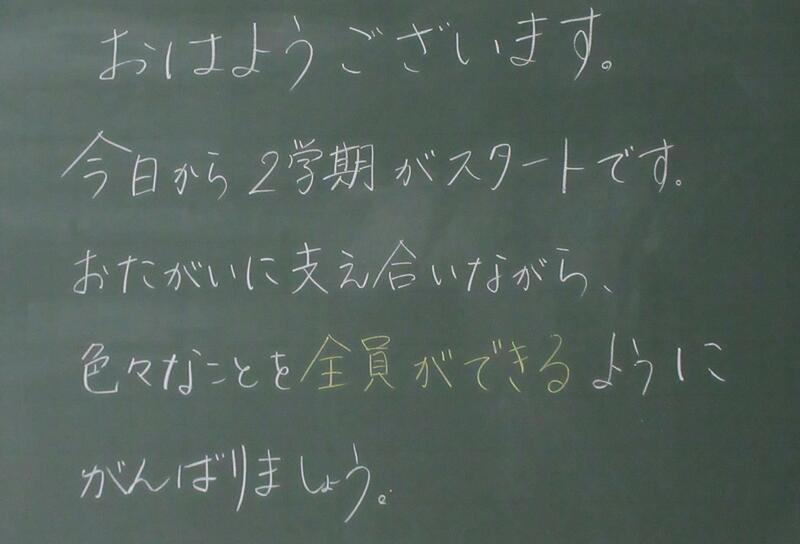 おはようございます。
今日から2学期がスタートです。
おたがいに支え合いながら、
色々なことを全員ができるように
がんばりましょう。